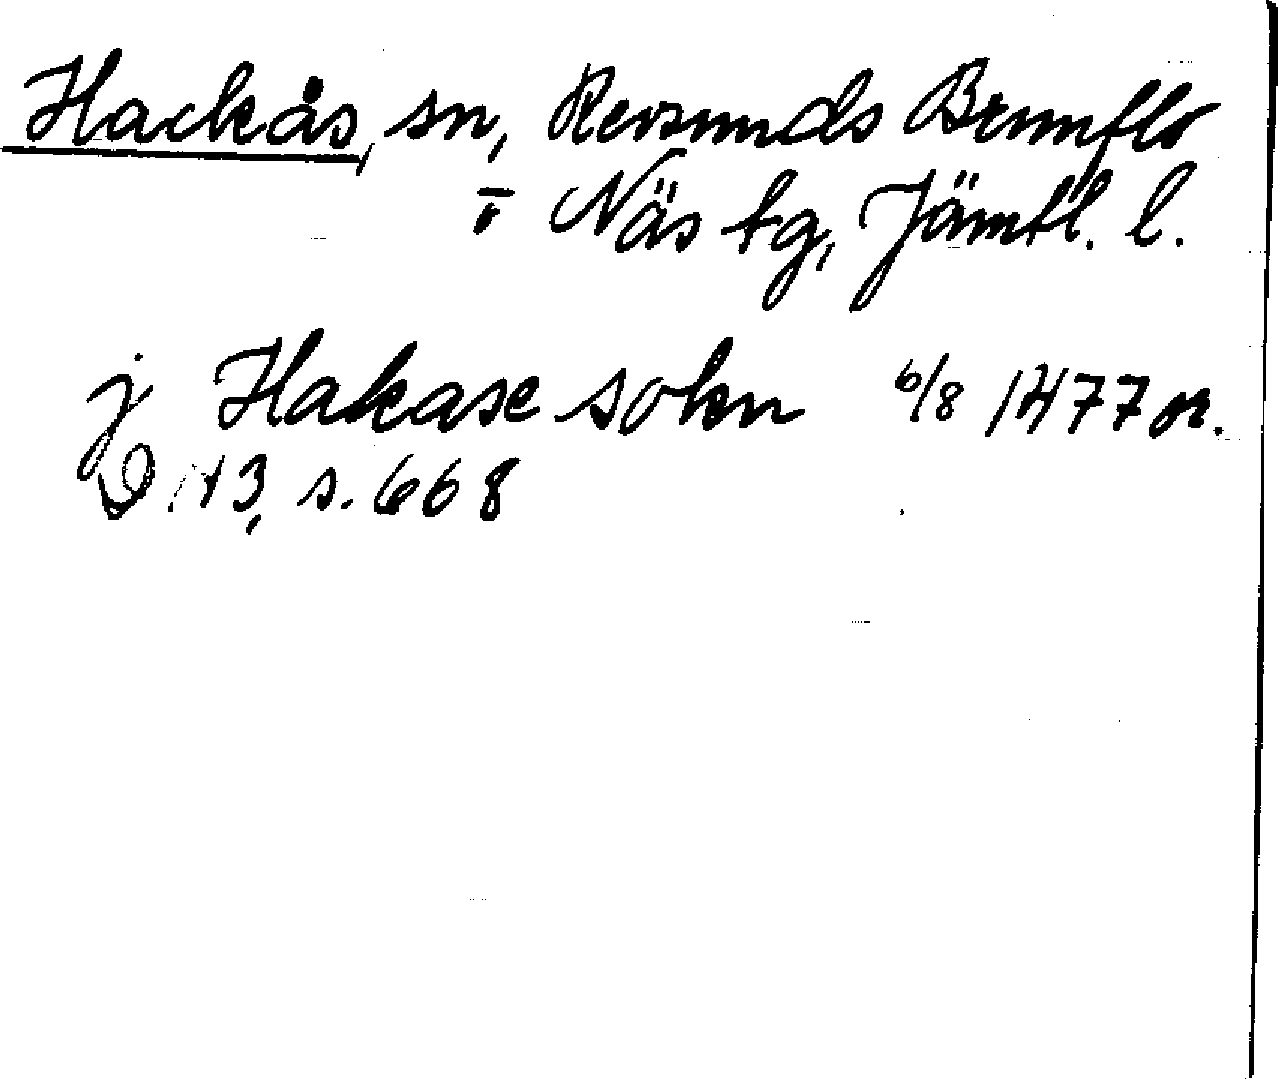 Hackås, sn, Revsunds Brunflo
o Näs tg, Jämtl. l.
j Hakase sokn 6/8 1477 or.
D 143, s. 668